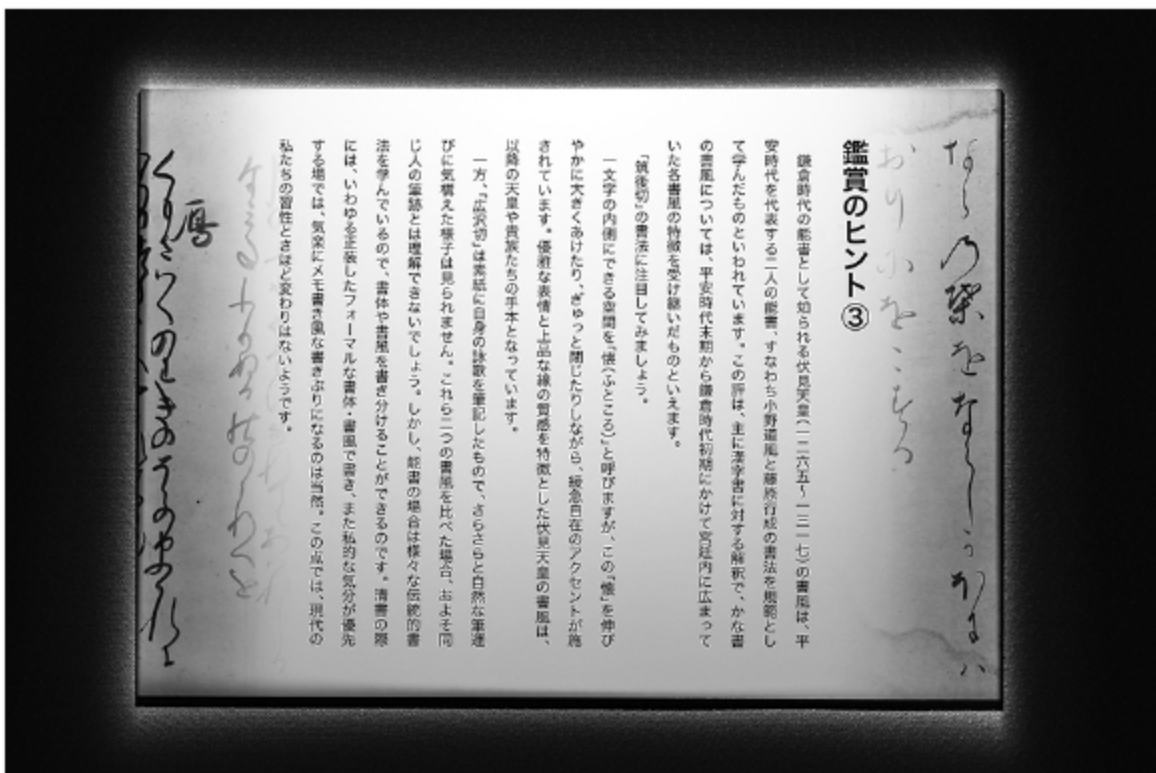 鑑賞のヒント③
鎌倉時代の能書として知られる伏見天皇(一二六五〜一三一七)の書風は、平
安時代を代表する二人の能書、すなわち小野道風と藤原行成の書法を規範とし
て学んだものといわれています。この評は、主に漢字書に対する解釈で、かな書
の書風については、平安時代末期から鎌倉時代初期にかけて宮廷内に広まって
いた各書風の特徴を受け継いだものといえます。
「筑後切」の書法に注目してみましょう。
一文字の内側にできる空間を「懐(ふところ)」と呼びますが、この「懐」を伸び
やかに大きくあけたり、ぎゅっと閉じたりしながら、緩急自在のアクセントが施
されています。優雅な表情と上品な線の質感を特徴とした伏見天皇の書風は、
以降の天皇や貴族たちの手本となっています。
一方、「広沢切」は素紙に自身の詠歌を筆記したもので、さらさらと自然な筆運
びに気構えた様子は見られません。これら二つの書風を比べた場合、およそ同
じ人の筆跡とは理解できないでしょう。しかし、能書の場合は様々な伝統的書
法を学んでいるので、書体や書風を書き分けることができるのです。清書の際
には、いわゆる正装したフォーマルな書体・書風で書き、また私的な気分が優先
する場では、気楽にメモ書き風な書きぶりになるのは当然。この点では、現代の
私たちの習性とさほど変わりはないようです。